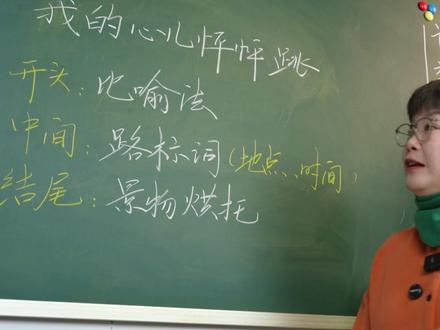 我的心儿怦怦跳
开头：比喻法
中间：路标词（地点、时间）
结尾：景物烘托